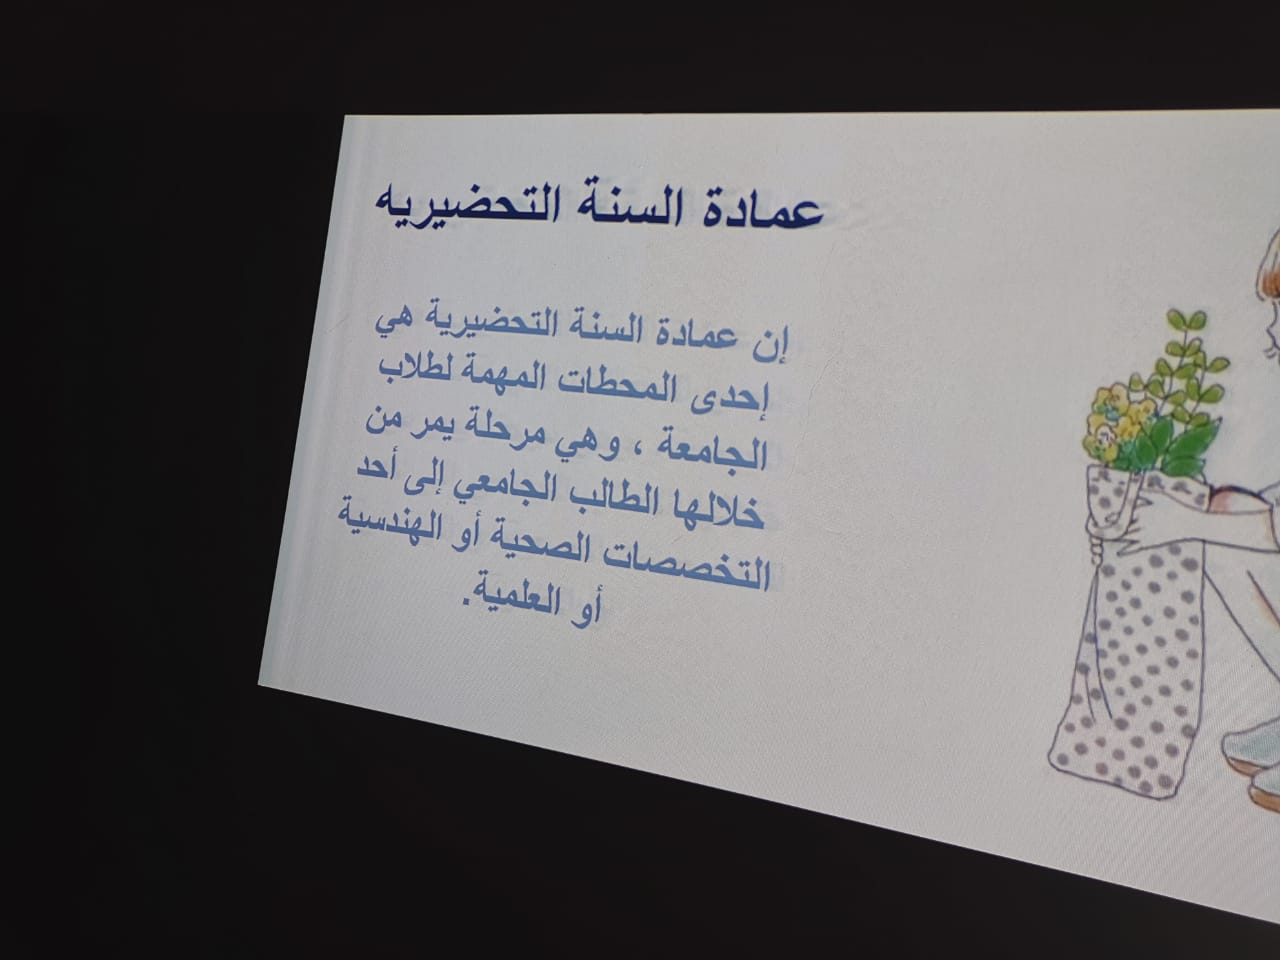 عمادة السنة التحضيريه
إن عمادة السنة التحضيرية هي
إحدى المحطات المهمة لطلاب
الجامعة ، وهي مرحلة يمر من
خلالها الطالب الجامعي إلى أحد
التخصصات الصحية أو الهندسية
أو العلمية.